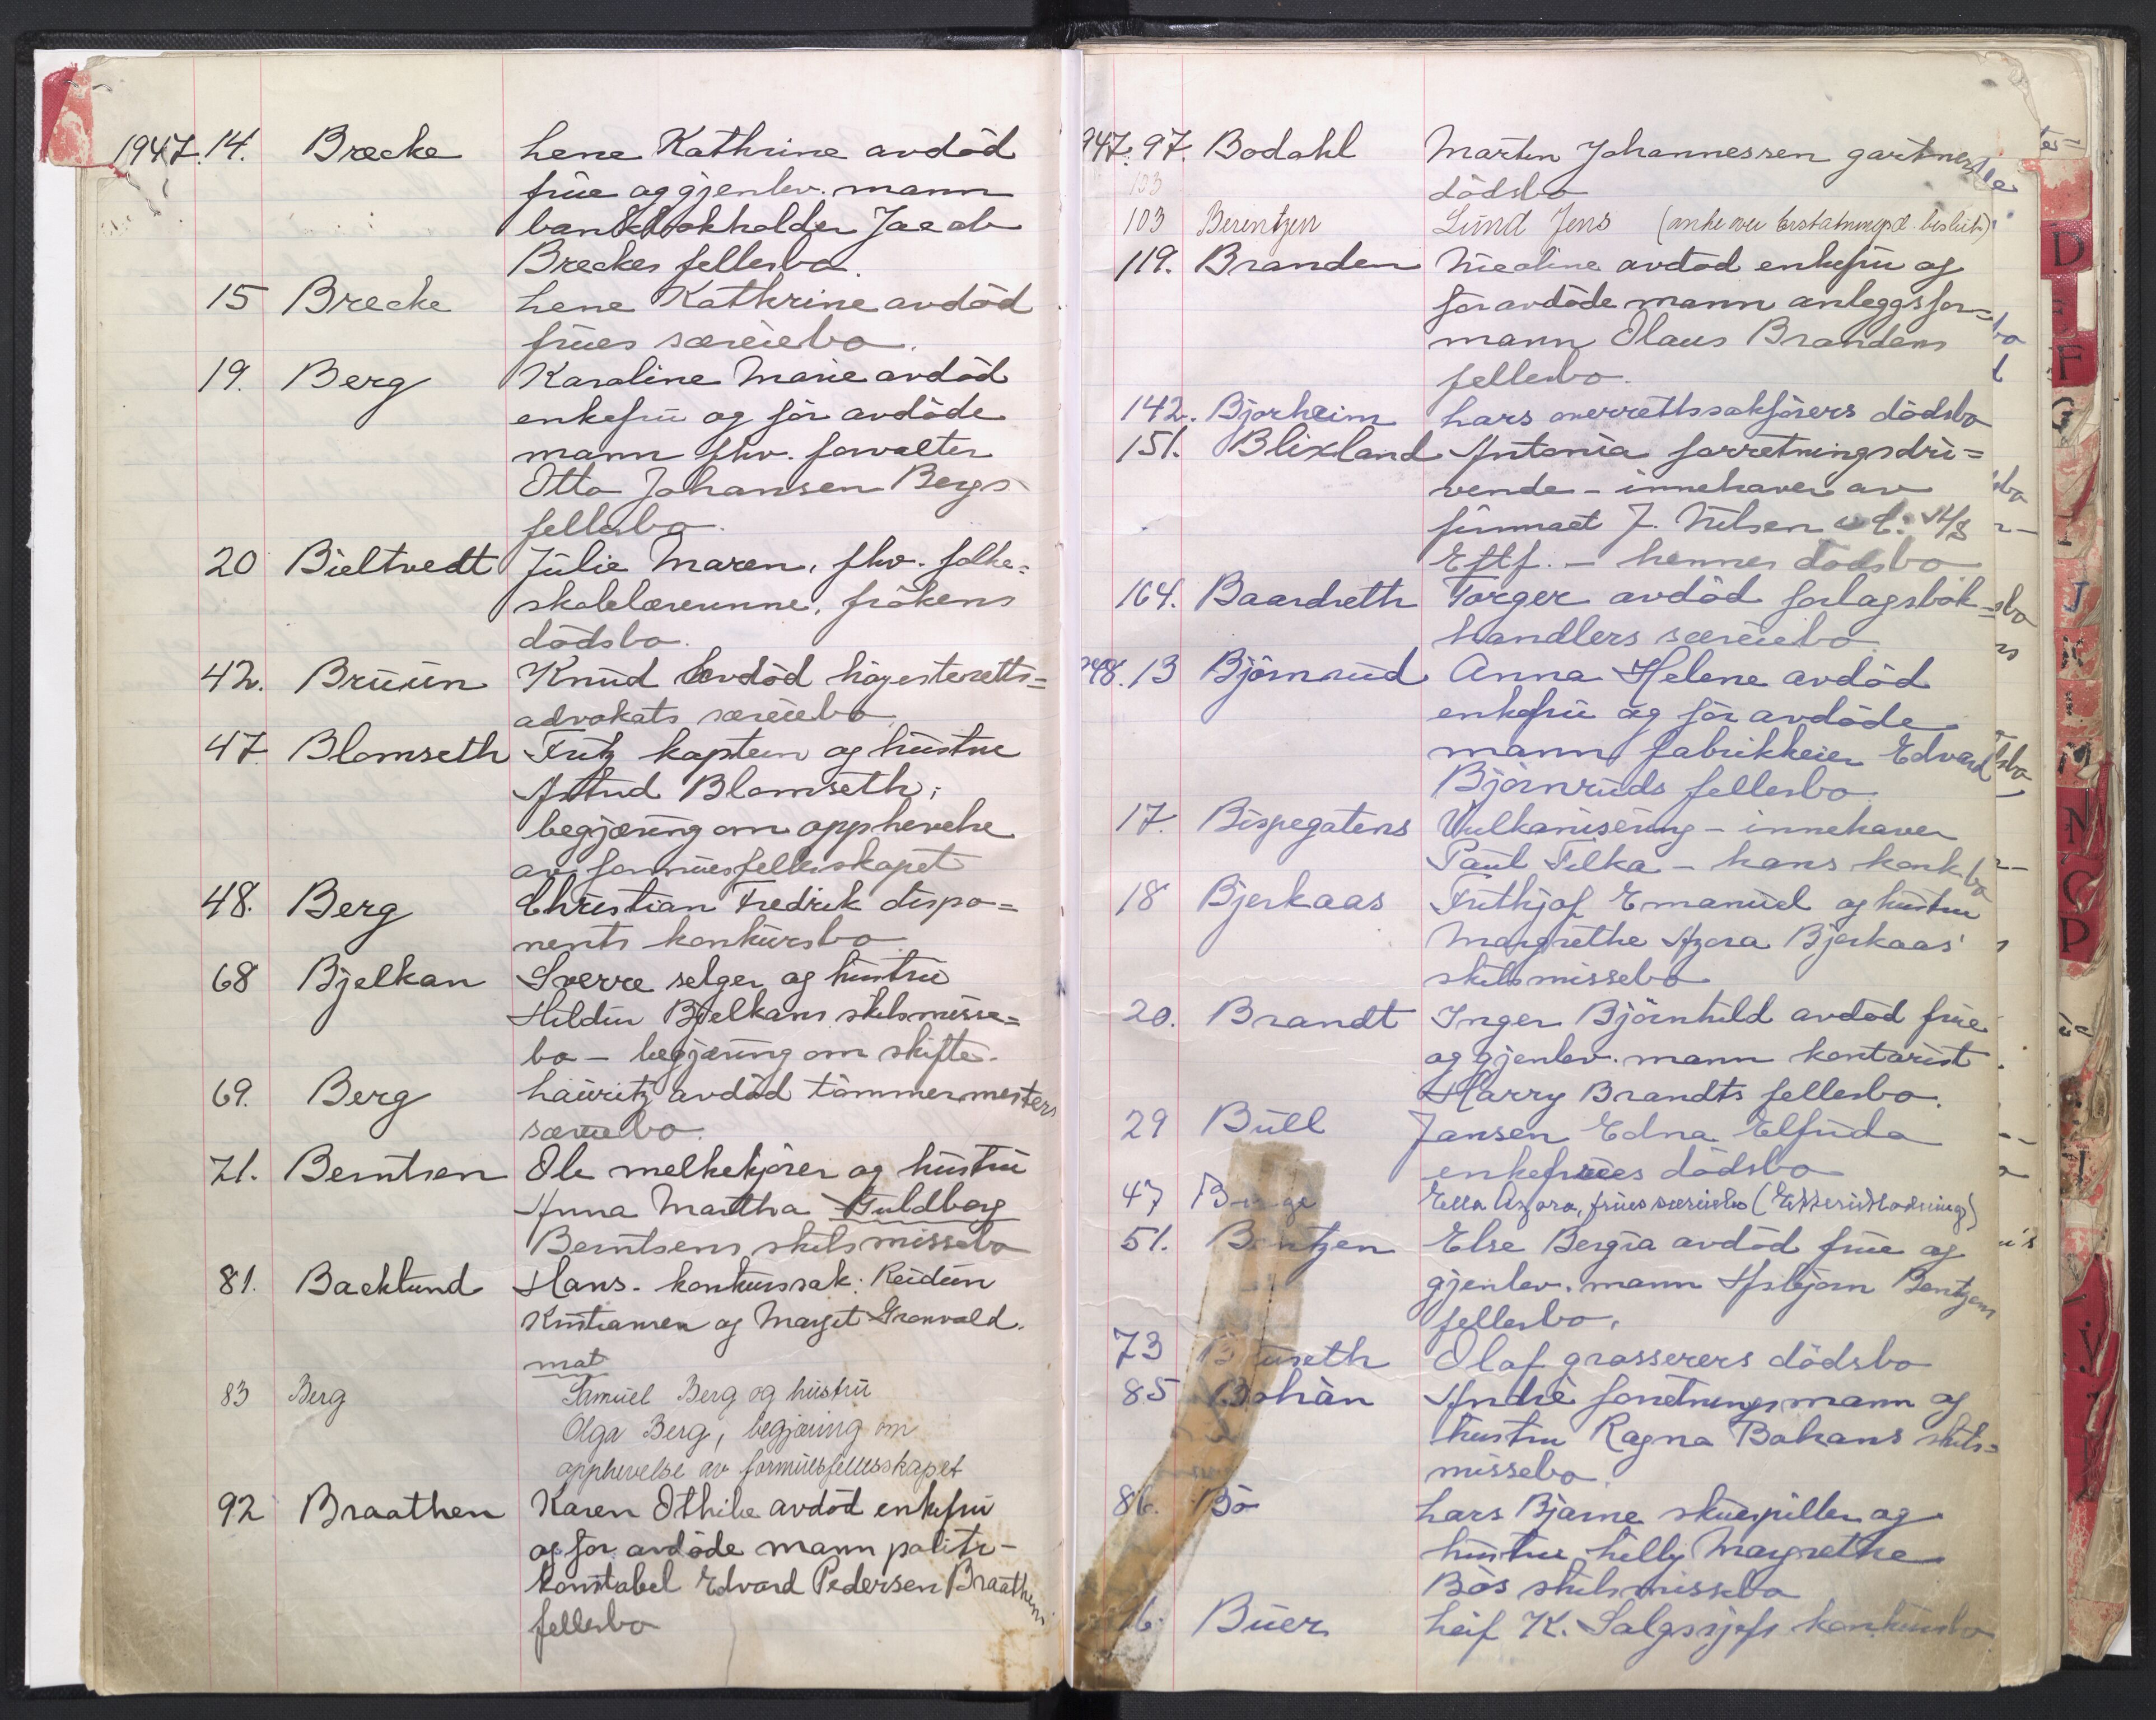 1947. 14. Brecke Lene Kathrine avdød
frue og gjenlev. mann
bankbokholder Jacob
Breckes fellesbo.
15 Brecke Lene Kathrine avdød
frues særeiebo.
19. Berg Karoline Marie avdød
enkefru og før avdøde
mann fhv. forvalter
Otto Johansen Bergs
fellesbo.
20 Bieltvedt Julie Maren, fhv. folke=
skolelærerinne, frökens
dödsbo.
42. Bruun Knud avdød høyesteretts=
advokats særeiebo
47 Blomseth Fritz kaptein og hustru
Astrid Blomseth;
begjæring om opphevelse
av formuesfellesskapet
48. Berg Christian Fredrik dispo=
nents konkursbo
68 Bjelkan Sverre selger og hustru
Hildur Bjelkans skilsmisse=
bo - begjæring om skifte.
69. Berg Lauritz avdød tömmermesters
særeiebo.
71. Berntsen Ole melkekjører og hustru
Anna Martha Guldborg
Berntsens skilsmissebo
81. Backlund Hans. konkurssak: Reidun
Kristiansen og Margit Grønvold.
mat
83 Berg Samuel Berg og hustru
Olga Berg, begjæring om
opphevelse av formuesfellesskapet
92 Braathen Karen Othilie avdød enkefru
og før avdøde mann politi-
konstabel Edvard Pedersen Braathens
fellesbo
947. 97. Bodahl Martin Johannessen gartners
103 dödsbo
103 Berentzen Lund Jens (anke over Erstatningsd. beslutn)
119. Branden Nicoline avdød enkefru og
før avdøde mann anleggsfor=
mann Olaus Brandens
fellesbo.
142. Bjorheim Lars overrettssakførers dödsbo
151. Blixland Antonia forretningsdri=
vende - innehaver av
firmaet J. Nilsen
Eftf. - hennes dödsbo
164. Baardseth Torger avdød forlagsbok=
handlers særeiebo
948. 13 Björnrud Anna Helene avdød
enkefru og før avdøde
mann fabrikkeier Edvard
Björnruds fellesbo
17. Bispegatens Vulkanisering - innehaver
Paul Filka - hans konkbo
18 Bjerkaas Frithjof Emanuel og hustru
Margrethe Azora Bjerkaas'
skilsmissebo
20. Brandt Inger Björnhild avdød frue
og gjenlev. mann kontorist
Harry Brandts fellesbo.
29 Bull Jansen Edna Elfrida
enkefrues dödsbo
47 Berge Ella Azora, frues særeiebo (Etterutlodning)
51. Bentzen Else Bergia avdød frue og
gjenlev. mann Asbjørn Bentzens
fellesbo.
73 Olaf grosserers dödsbo
85 Bohàn André forretningsmann og
hustru Ragna Bohans skils=
missebo.
86. Bö Lars Bjarne skuespiller og
hustru Lilly Margrethe
Bös skilsmissebo
Buer Leif K. Salgssjefs konkursbo
D
F
G
I
J
K
M
N
O
P